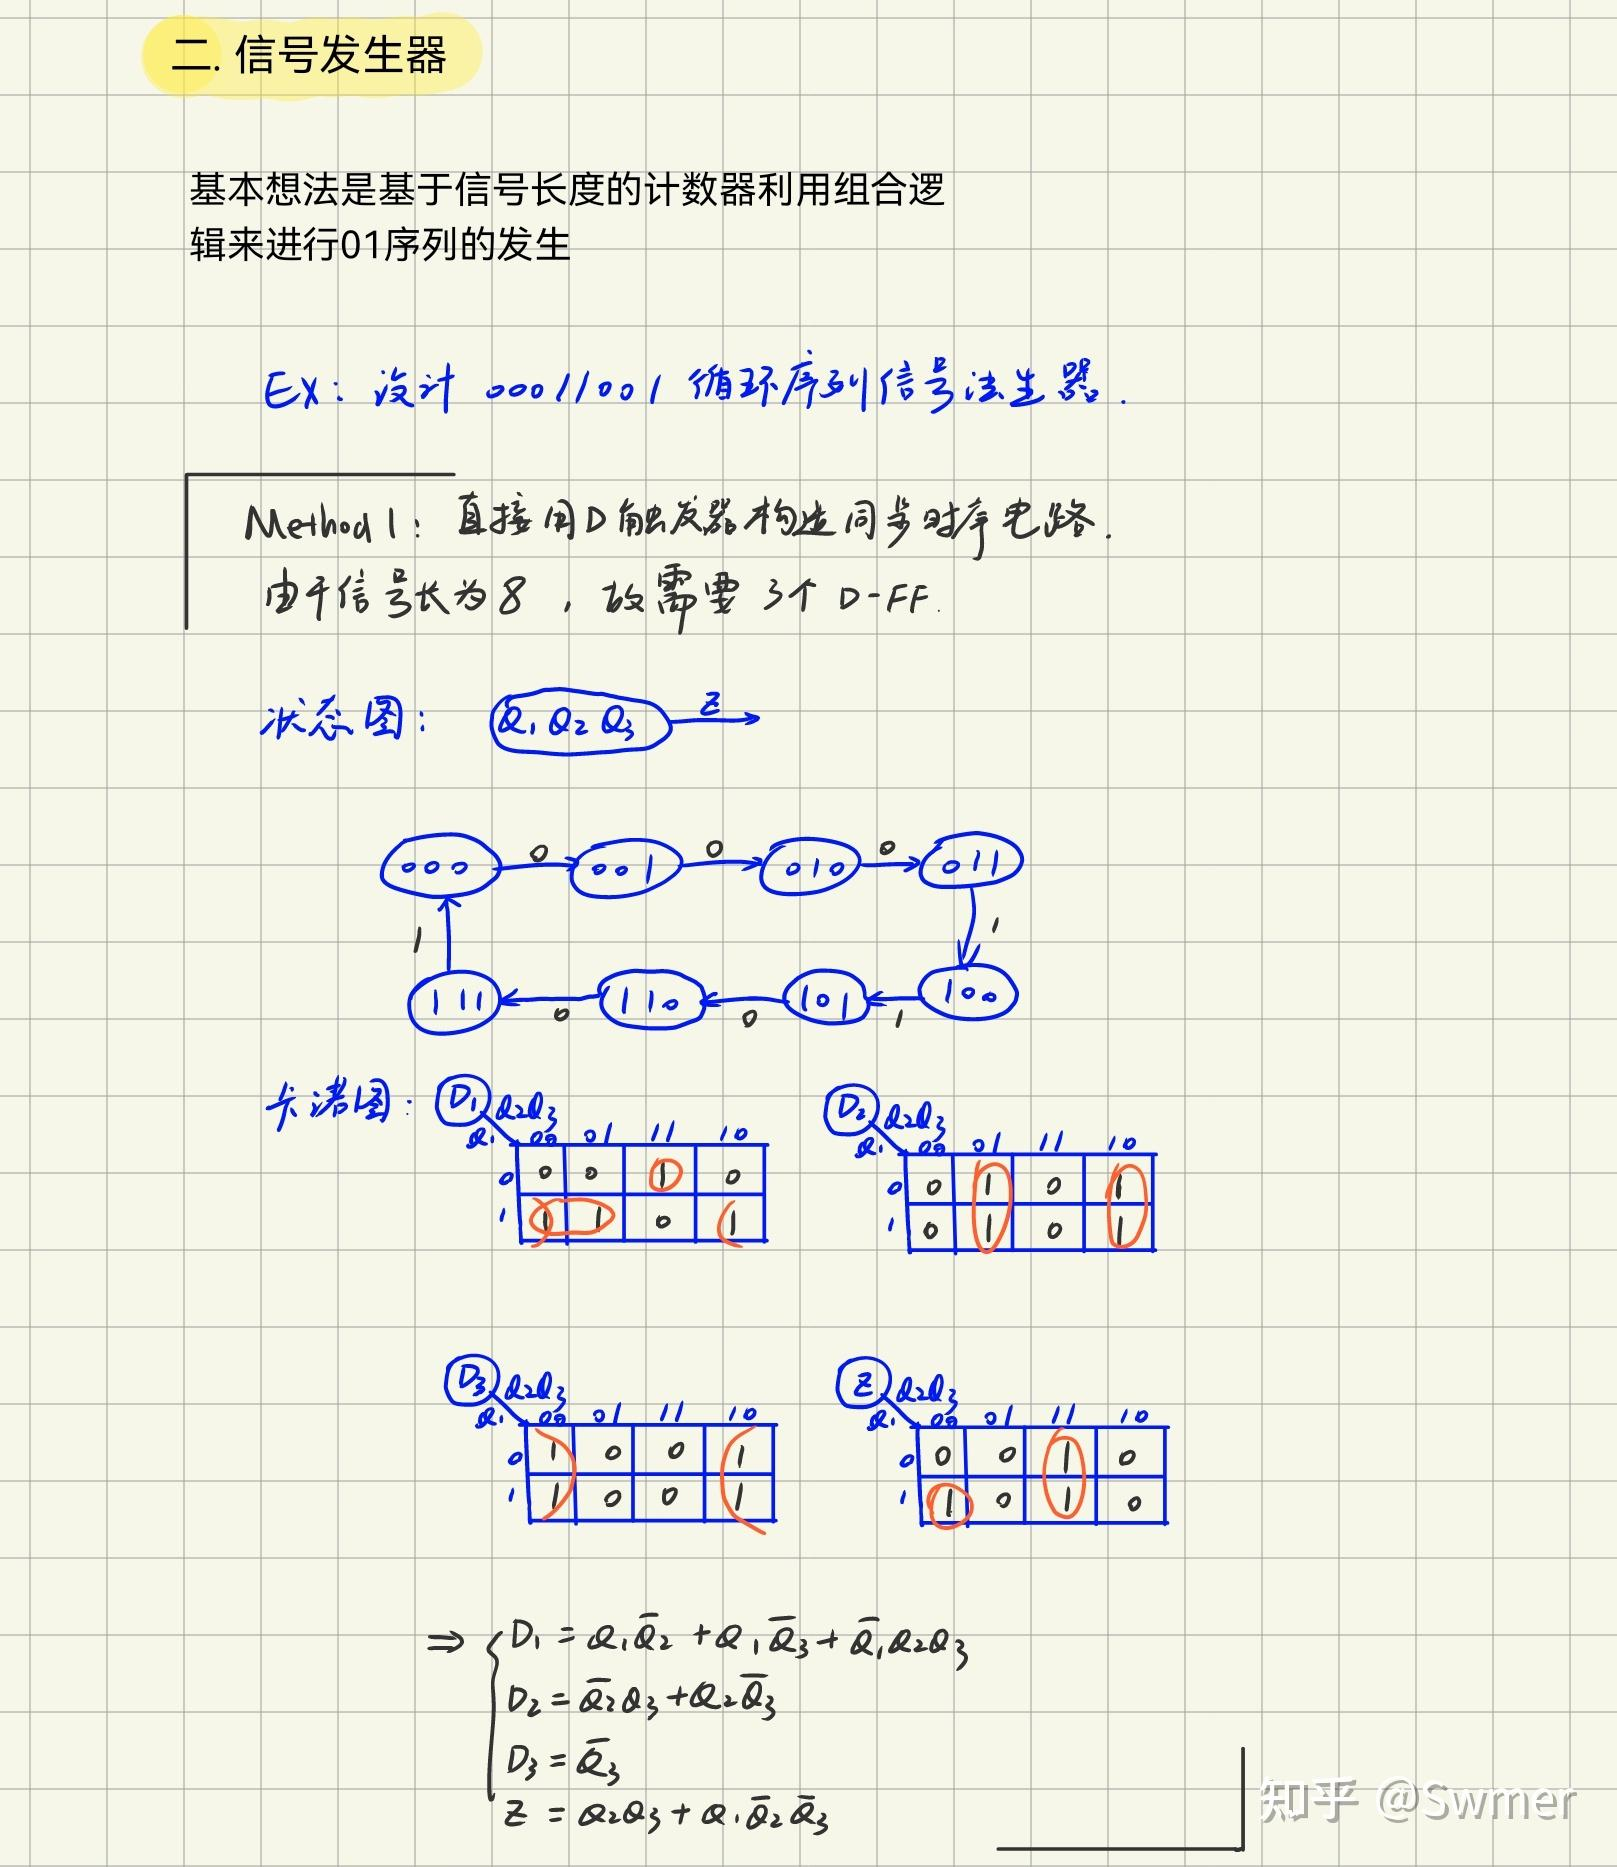 二. 信号发生器
基本想法是基于信号长度的计数器利用组合逻
辑来进行01序列的发生
EX: 设计 00011001 循环序列信号法生器.
Method 1: 直接用D触发器构造同步时序电路.
由于信号长为8 , 故需要 3个 D-FF.
状态图: Q₁Q₂Q₃ Z
000 0 001 0 010 0 011
1 1
111 0 110 0 101 1 100
卡诺图: D₁ Q₂Q₃ D₂ Q₂Q₃
Q₁ 00 01 11 10 Q₁ 00 01 11 10
0 0 0 1 0 0 0 1 0 1
1 1 1 0 1 1 0 1 0 1
D₃ Q₂Q₃ Z Q₂Q₃
Q₁ 00 01 11 10 Q₁ 00 01 11 10
0 1 0 0 1 0 0 0 1 0
1 1 0 0 1 1 1 0 1 0
⇒ { D₁ = Q₁Q̅₂ + Q₁Q̅₃ + Q̅₁Q₂Q₃
D₂ = Q̅₂Q₃ + Q₂Q̅₃
D₃ = Q̅₃
Z = Q₂Q₃ + Q₁Q̅₂Q̅₃
知乎 @Swmer